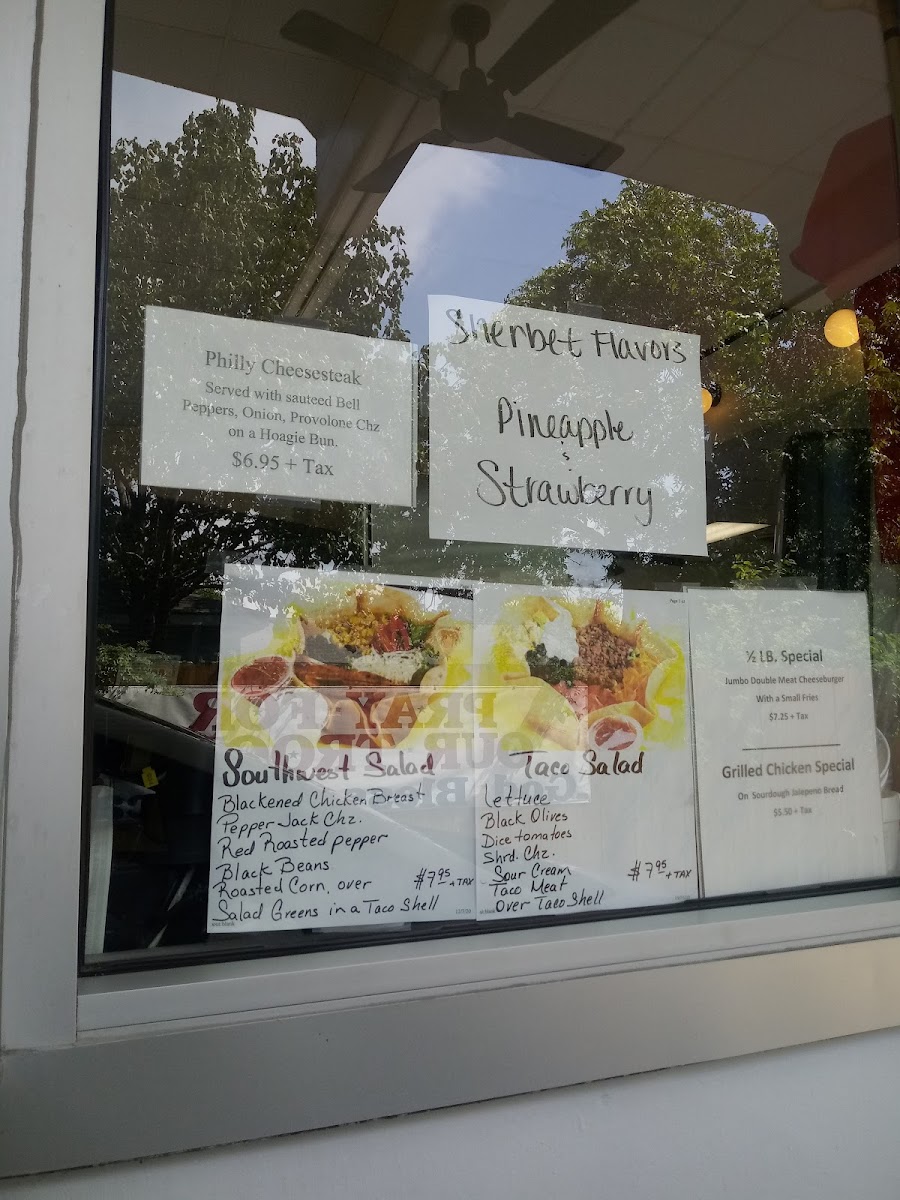 Philly Cheesesteak
Served with sauteed Bell
Peppers, Onion, Provolone Chz
on a Hoagie Bun.
$6.95 + Tax
Sherbet Flavors
Pineapple
&
Strawberry
Southwest Salad
Blackened Chicken Breast
Pepper Jack Chz.
Red Roasted pepper
Black Beans
Roasted Corn, over
Salad Greens in a Taco Shell
$7.95 + TAX
Taco Salad
Lettuce
Black Olives
Dice tomatoes
Shrd. Chz.
Sour Cream
Taco Meat
Over Taco Shell
$7.95 + TAX
½ LB. Special
Jumbo Double Meat Cheeseburger
With a Small Fries
$7.25 + Tax
Grilled Chicken Special
On Sourdough Jalapeno Bread
$5.50 + Tax
PRAY FOR
OUR